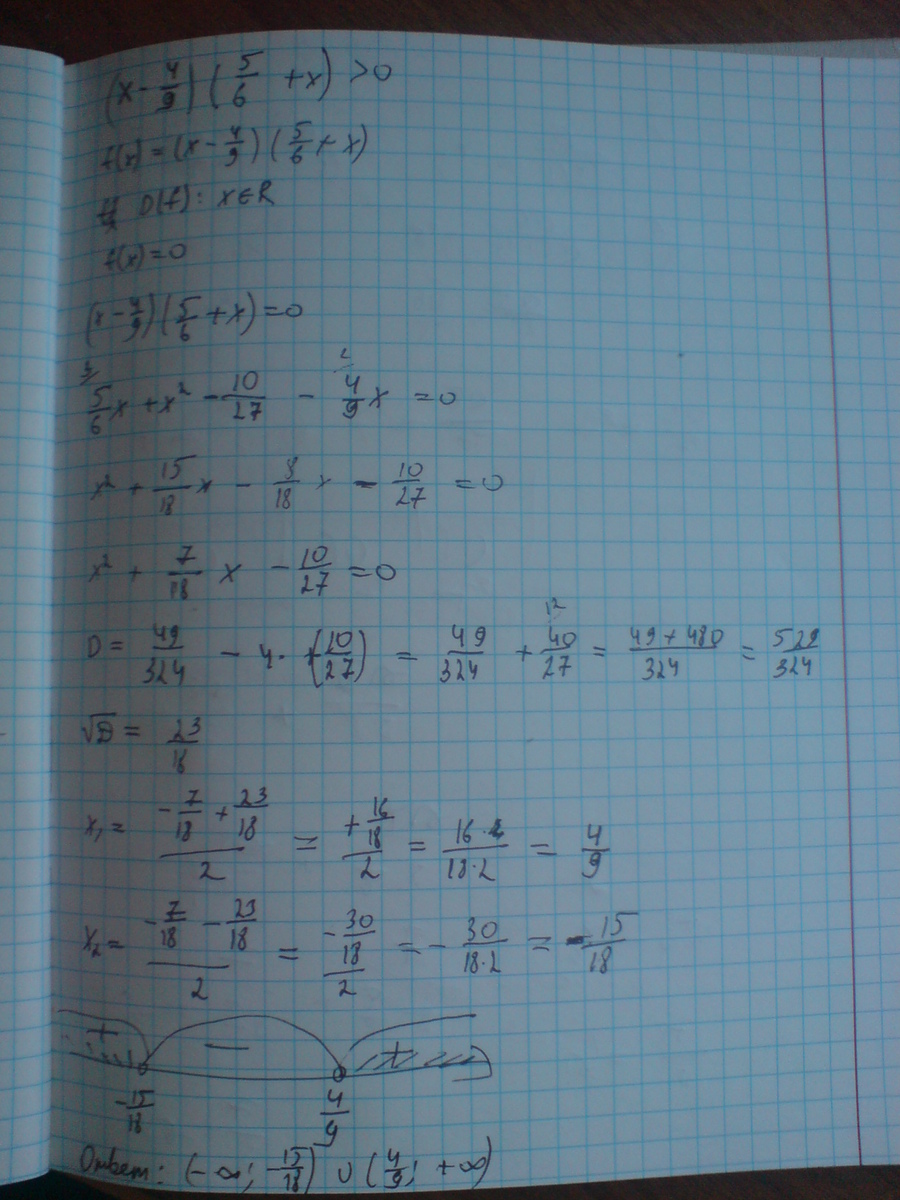 (x - 4/9)(5/6 + x) > 0
f(x) = (x - 4/9)(5/6 + x)
D(f): x ∈ R
f(x) = 0
(x - 4/9)(5/6 + x) = 0
5/6 x + x² - 10/27 - 4/9 x = 0
x² + 15/18 x - 8/18 x - 10/27 = 0
x² + 7/18 x - 10/27 = 0
D = 49/324 - 4 · (-10/27) = 49/324 + 40/27 = (49 + 480)/324 = 529/324
√D = 23/18
x₁ = (-7/18 + 23/18)/2 = (+16/18)/2 = 16/(18·2) = 4/9
x₂ = (-7/18 - 23/18)/2 = (-30/18)/2 = -30/(18·2) = -15/18
+ − +
-15/18 4/9
Ответ: (-∞; -15/18) ∪ (4/9; +∞)